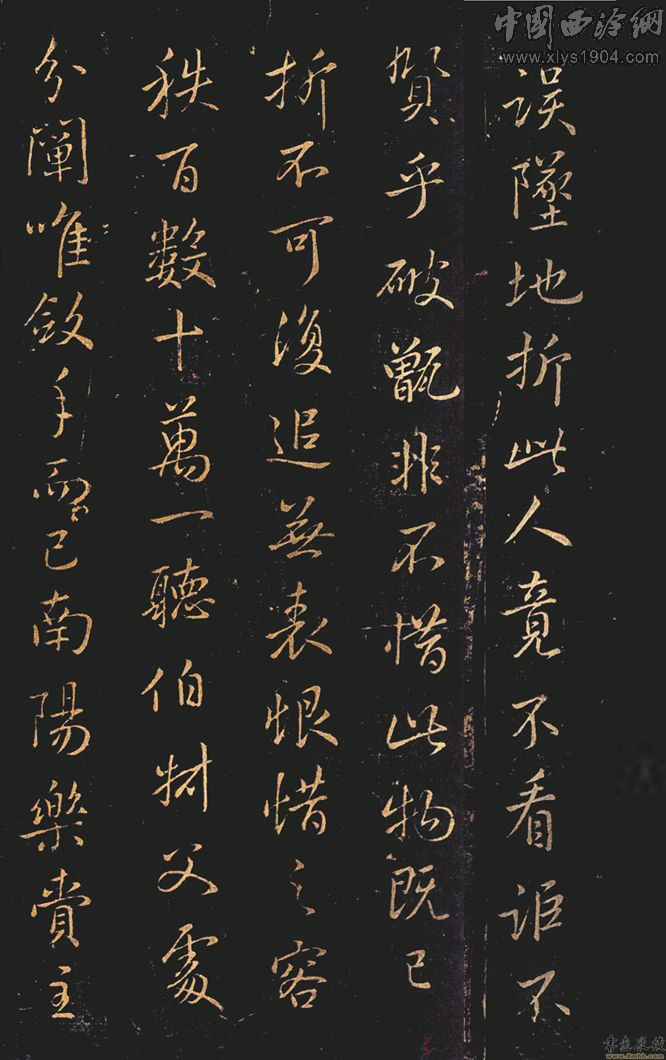 中國西泠網
www.xlys1904.com
誤墜地折此人竟不看詎不
賢乎破甑非不惜此物既已
折不可復追無表恨惜之容
秩百數十萬一聽伯財父處
分闡唯斂手而已南陽樂賁主